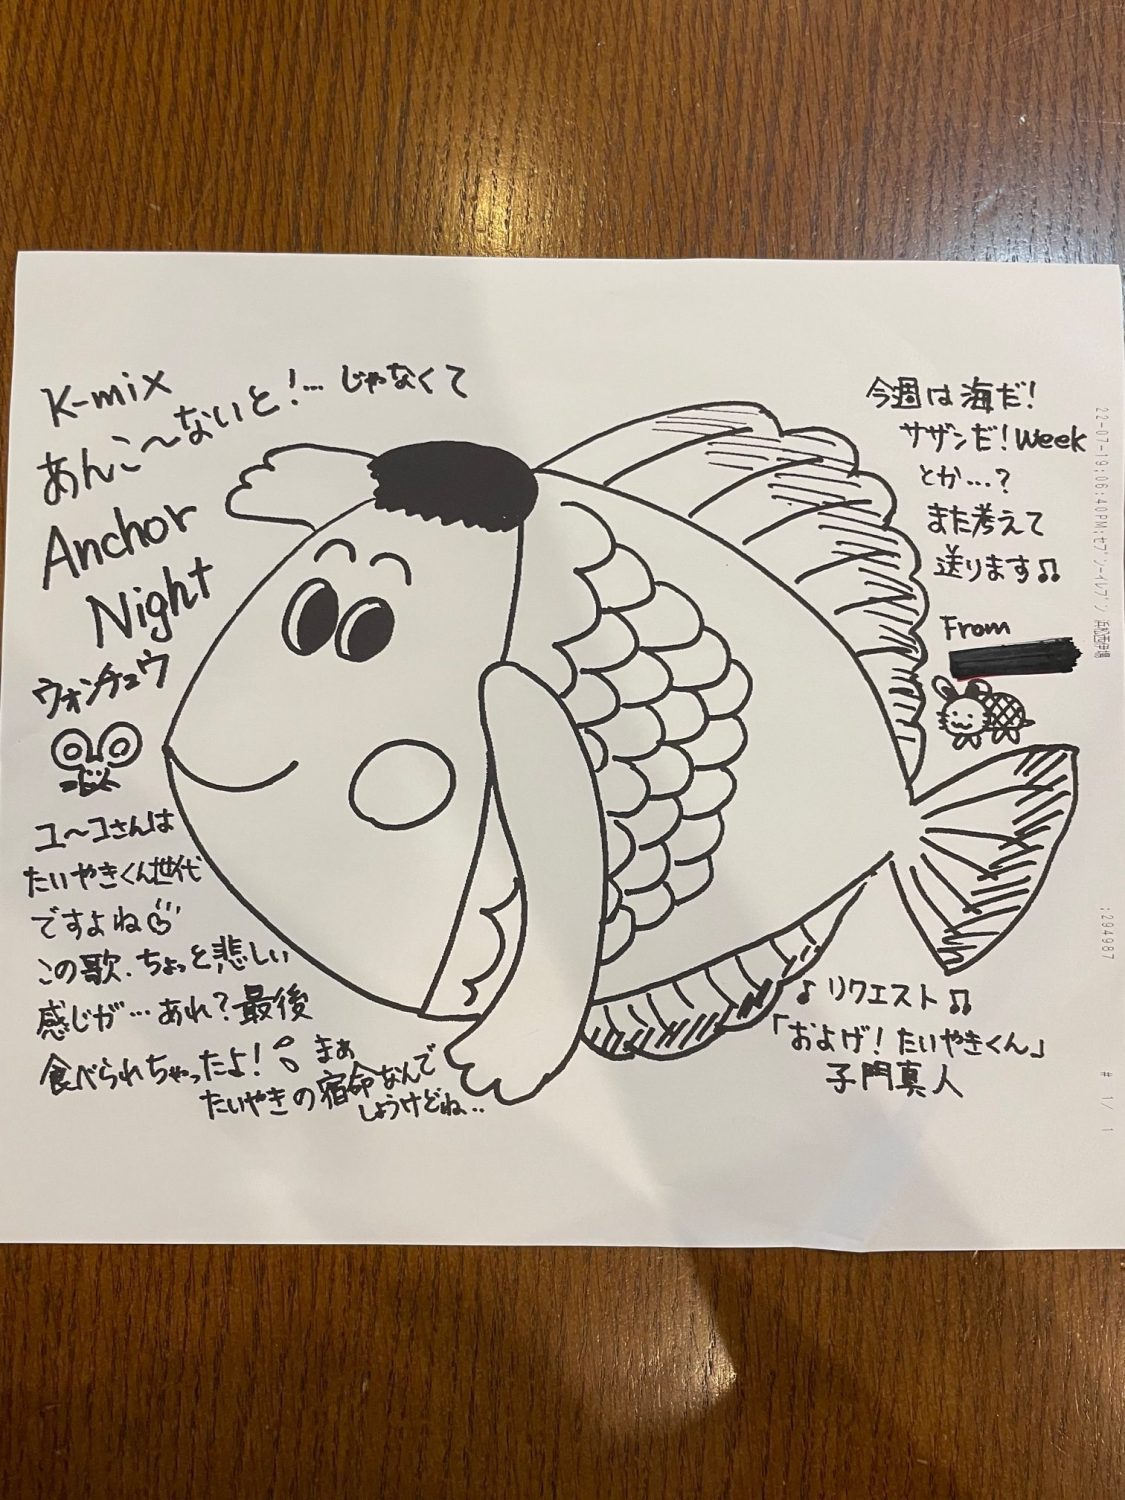 K-mix
あんこ〜ないと!…じゃなくて
Anchor
Night
ウォンチュウ
ユ〜コさんは
たいやきくん世代
ですよね
この歌、ちょっと悲しい
感じが…あれ?最後
食べられちゃったよ!まぁ
たいやきの宿命なんで
しょうけどね..
今週は海だ!
サザンだ!Week
とか…?
また考えて
送ります♫
From
♪リクエスト♫
「およげ!たいやきくん」
子門真人
22-07-19;06:40PM;セブン-イレブン
;294987
# 1/ 1